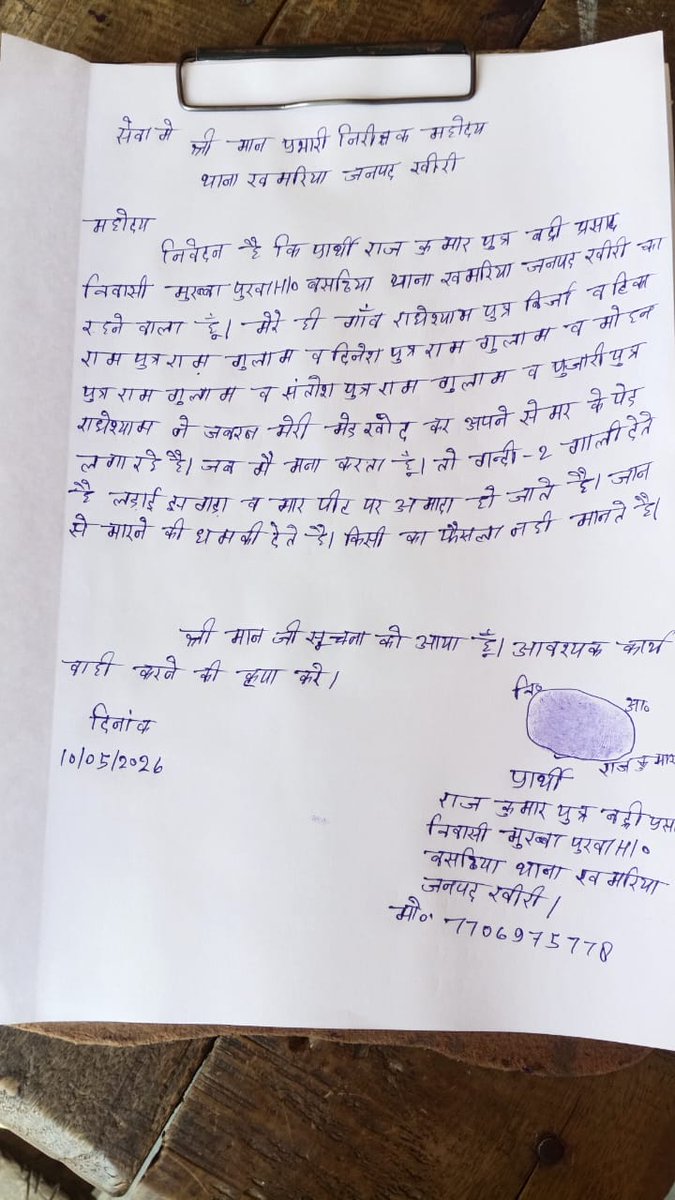 सेवा मे
श्री मान प्रभारी निरीक्षक महोदय
थाना खमरिया जनपद खीरी
महोदय
निवेदन है कि प्रार्थी राज कुमार पुत्र बद्री प्रसाद
निवासी मुरब्बा पुरवा H/o बसढिया थाना खमरिया जनपद खीरी का
रहने वाला हूँ। मेरे ही गाँव राधेश्याम पुत्र व
राम पुत्र राम गुलाम व दिनेश पुत्र राम गुलाम व मोहन
पुत्र राम गुलाम व संतोश पुत्र राम गुलाम व पुजारी पुत्र
राधेश्याम ने जबरन मेरी मेड खोद कर अपने सेमर के पेड
लगा रहे है। जब मै मना करता हूँ। तो गन्दी-2 गाली देते
है लड़ाई झगड़ा व मार पीट पर अमादा हो जाते है। जान
से मारने की धमकी देते है। किसी का फैसला नही मानते है।
श्री मान जी सूचना को आया हूँ। आवश्यक कार्य
वाही करने की कृपा करे।
दिनांक
10/05/2026
नि० आ०
राज कुमार
प्रार्थी
राज कुमार पुत्र बद्री प्रसा
निवासी मुरब्बा पुरवा H/o
बसढिया थाना खमरिया
जनपद खीरी।
मो० 7706975778